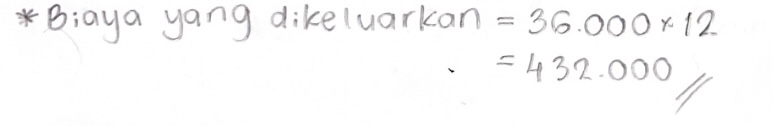 * Biaya yang dikeluarkan = 36.000 x 12
= 432.000 //